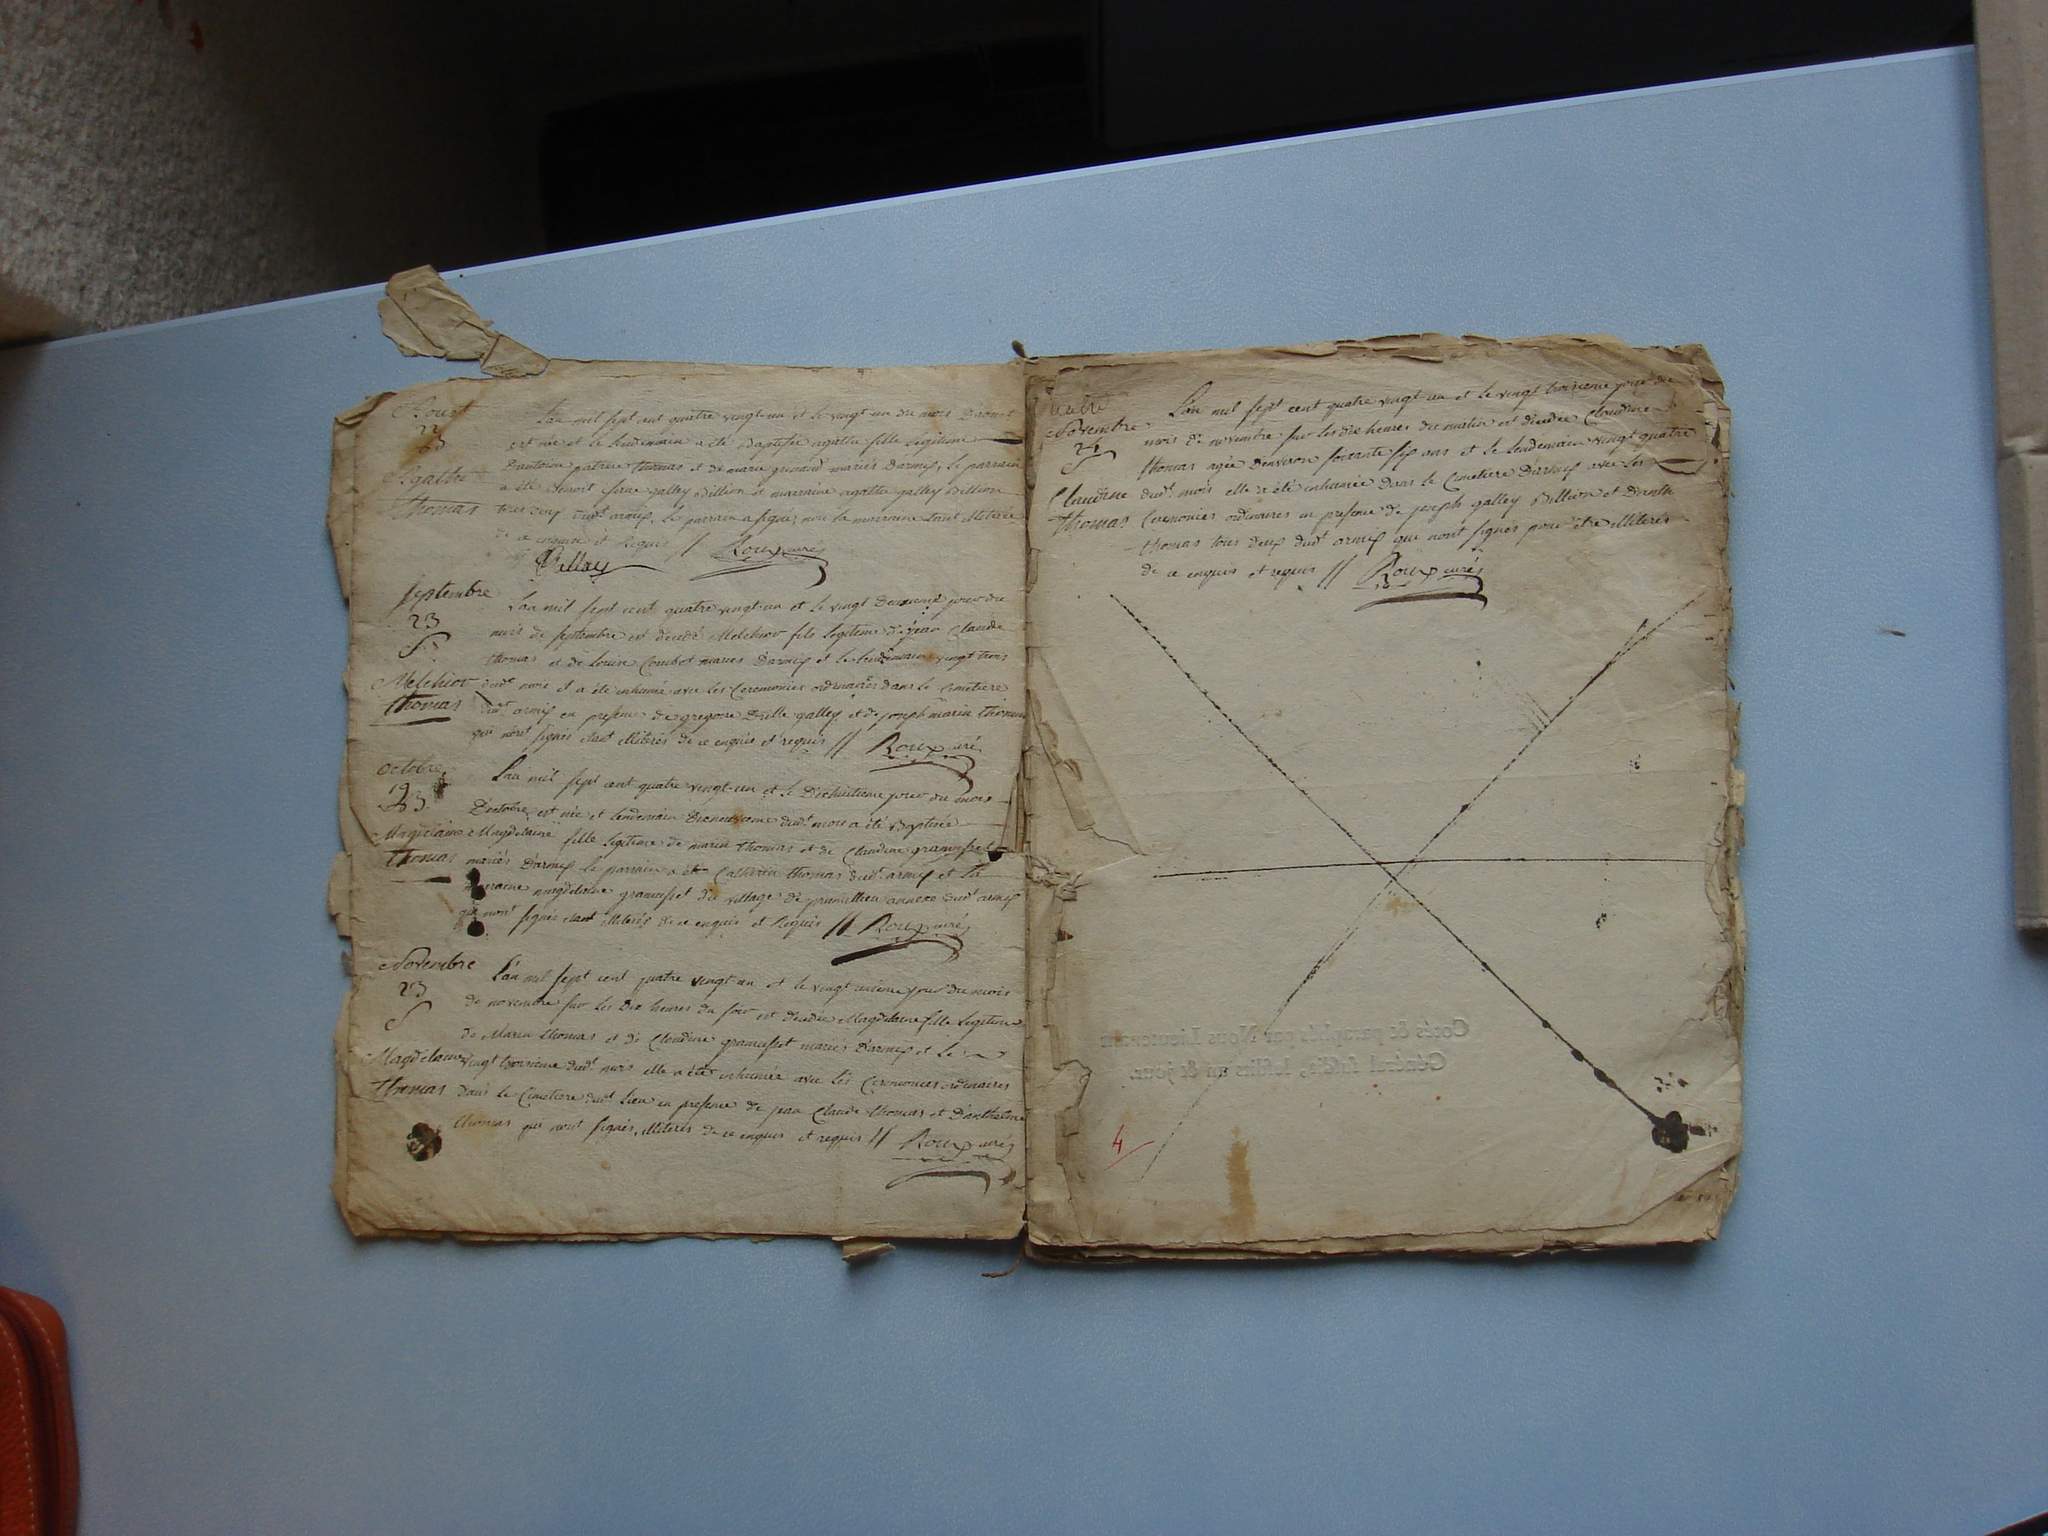 Aoust
22
B
Agathe
Thomas
L'an mil sept cent quatre vingt-un et le vingt-un du mois d'aoust
est née et le lendemain a été Baptisée agathe fille legitime
d'antoine Thomas et de marie mariés d'armix, le parrain
a été Benoit galley Billion et marraine agathe galley Billion
tous deux dudt armix, le parrain a signé, non la marraine étant illiterée
de ce enquise et requis // Roux curé
Septembre
23
S
Melchior
Thomas
L'an mil sept cent quatre vingt-un et le vingt deuxieme jour du
mois de septembre est decedé Melchior fils legitime de jean Claude
thomas et de Louise Combet mariés d'armix et le lendemain vingt trois
dudt mois il a été inhumé avec les Ceremonies ordinaires dans le Cimetiere
dudt armix en presence de gregoire galley et de joseph marin thomas
qui n'ont signés étant illiterés de ce enquis et requis // Roux curé
octobre
19
B
Magdelaine
Thomas
L'an mil sept cent quatre vingt-un et le Dixhuitieme jour du mois
d'octobre est née et lendemain dixneuvieme dudt mois a été Baptisée
Magdelaine fille legitime de marin thomas et de Claudine gramusset
mariés d'armix le parrain a été thomas dudt armix et la
marraine magdelaine gramusset du village de premillieu annexe dudt armix
qui n'ont signés étant illiterés de ce enquis et requis // Roux curé
Novembre
23
S
Magdelaine
Thomas
L'an mil sept cent quatre vingt-un et le vingt jour du mois
de novembre sur les dix heures du soir est decedée Magdelaine fille legitime
de Marin thomas et de Claudine gramusset mariés d'armix et le
vingt troisieme dudt mois elle a été inhumée avec les Ceremonies ordinaires
dans le Cimetiere dudt lieu en presence de jean Claude thomas et d'anthelme
thomas qui n'ont signés, illiterés de ce enquis et requis // Roux curé
Novembre
24
S
Claudine
Thomas
L'an mil sept cent quatre vingt-un et le vingt troisieme jour du
mois de novembre sur les dix heures du matin est decedée Claudine
thomas agée d'environ soixante six ans et le lendemain vingt quatre
dudt mois elle a été inhumée dans le Cimetiere d'armix avec les
Ceremonies ordinaires en presence de joseph galley Billion et d'anth
thomas tous deux dudt armix qui n'ont signés pour être illiterés
de ce enquis et requis // Roux curé
Cotés & paraphés par Nous Lieutenant
Général
4